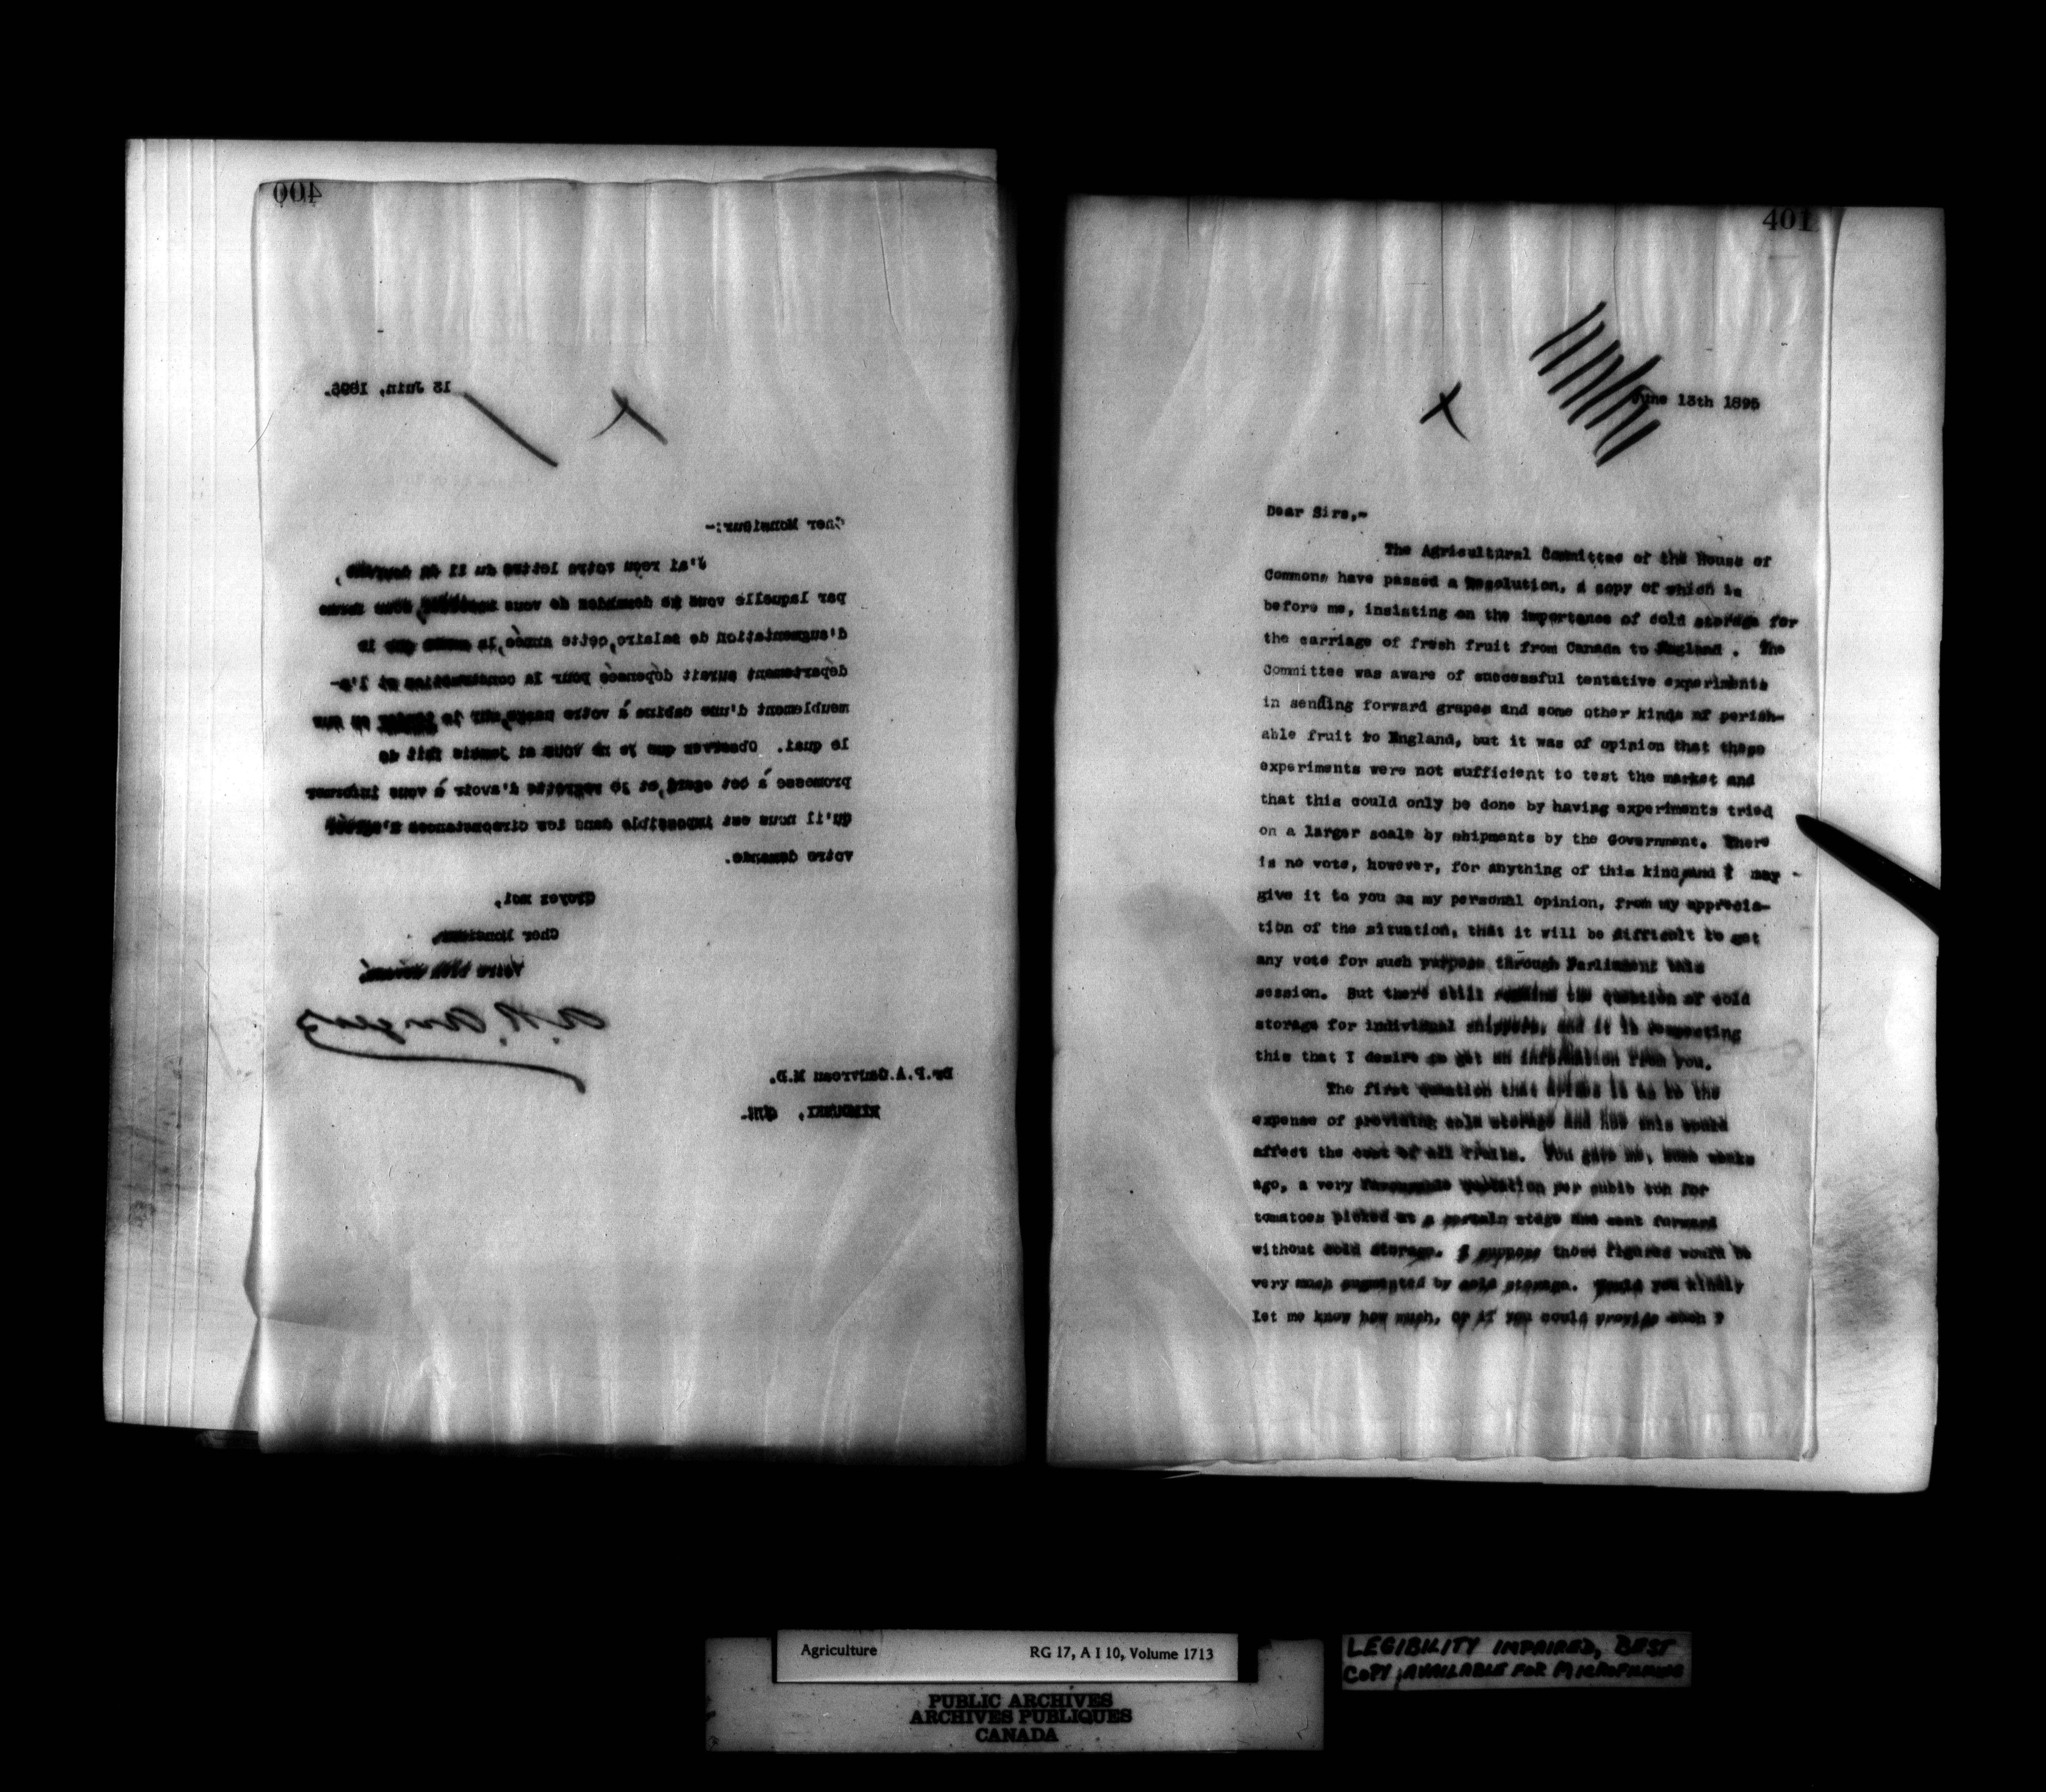 400
13 Juin, 1895.
Cher Monsieur:-
J'ai reçu votre lettre du 11 du
par laquelle vous me demandez de vous sous forme
d'augmentation de salaire, cette année, la somme que le
département aurait dépensée pour la construction et l'a-
meublement d'une cabine à votre usage, sur le ou sur
le quai. Observez que je ne vous ai jamais fait de
promesse à cet egard, et je regrette d'avoir à vous informer
qu'il nous est impossible dans les circonstances d'agréer
votre demande.
Croyez moi,
Cher Monsieur,
Votre bien dévoué,
A.R. Angers
Dr.P.A.Gauvreau M.D.
RIMOUSKI, Qué.
401
June 13th 1895
Dear Sirs,-
The Agricultural Committee of the House of
Commons have passed a Resolution, a copy of which is
before me, insisting on the importance of cold storage for
the carriage of fresh fruit from Canada to England . The
Committee was aware of successful tentative experiments
in sending forward grapes and some other kinds of perish-
able fruit to England, but it was of opinion that these
experiments were not sufficient to test the market and
that this could only be done by having experiments tried
on a larger scale by shipments by the Government. There
is no vote, however, for anything of this kind, and I may -
give it to you as my personal opinion, from my apprecia-
tion of the situation, that it will be difficult to get
any vote for such purpose through Parliament this
session. But there still remains the question of cold
storage for individual shippers, and it is respecting
this that I desire to get an information from you.
The first question that arises is as to the
expense of providing cold storage and how this would
affect the cost of all fruits. You gave me, some weeks
ago, a very favourable quotation per cubic ton for
tomatoes picked at a certain stage and sent forward
without cold storage. I suppose those figures would be
very much augmented by cold storage. Would you kindly
let me know how much, or if you could provide such ?
Agriculture RG 17, A I 10, Volume 1713
PUBLIC ARCHIVES
ARCHIVES PUBLIQUES
CANADA
LEGIBILITY IMPAIRED, BEST
COPY AVAILABLE FOR MICROFILMING